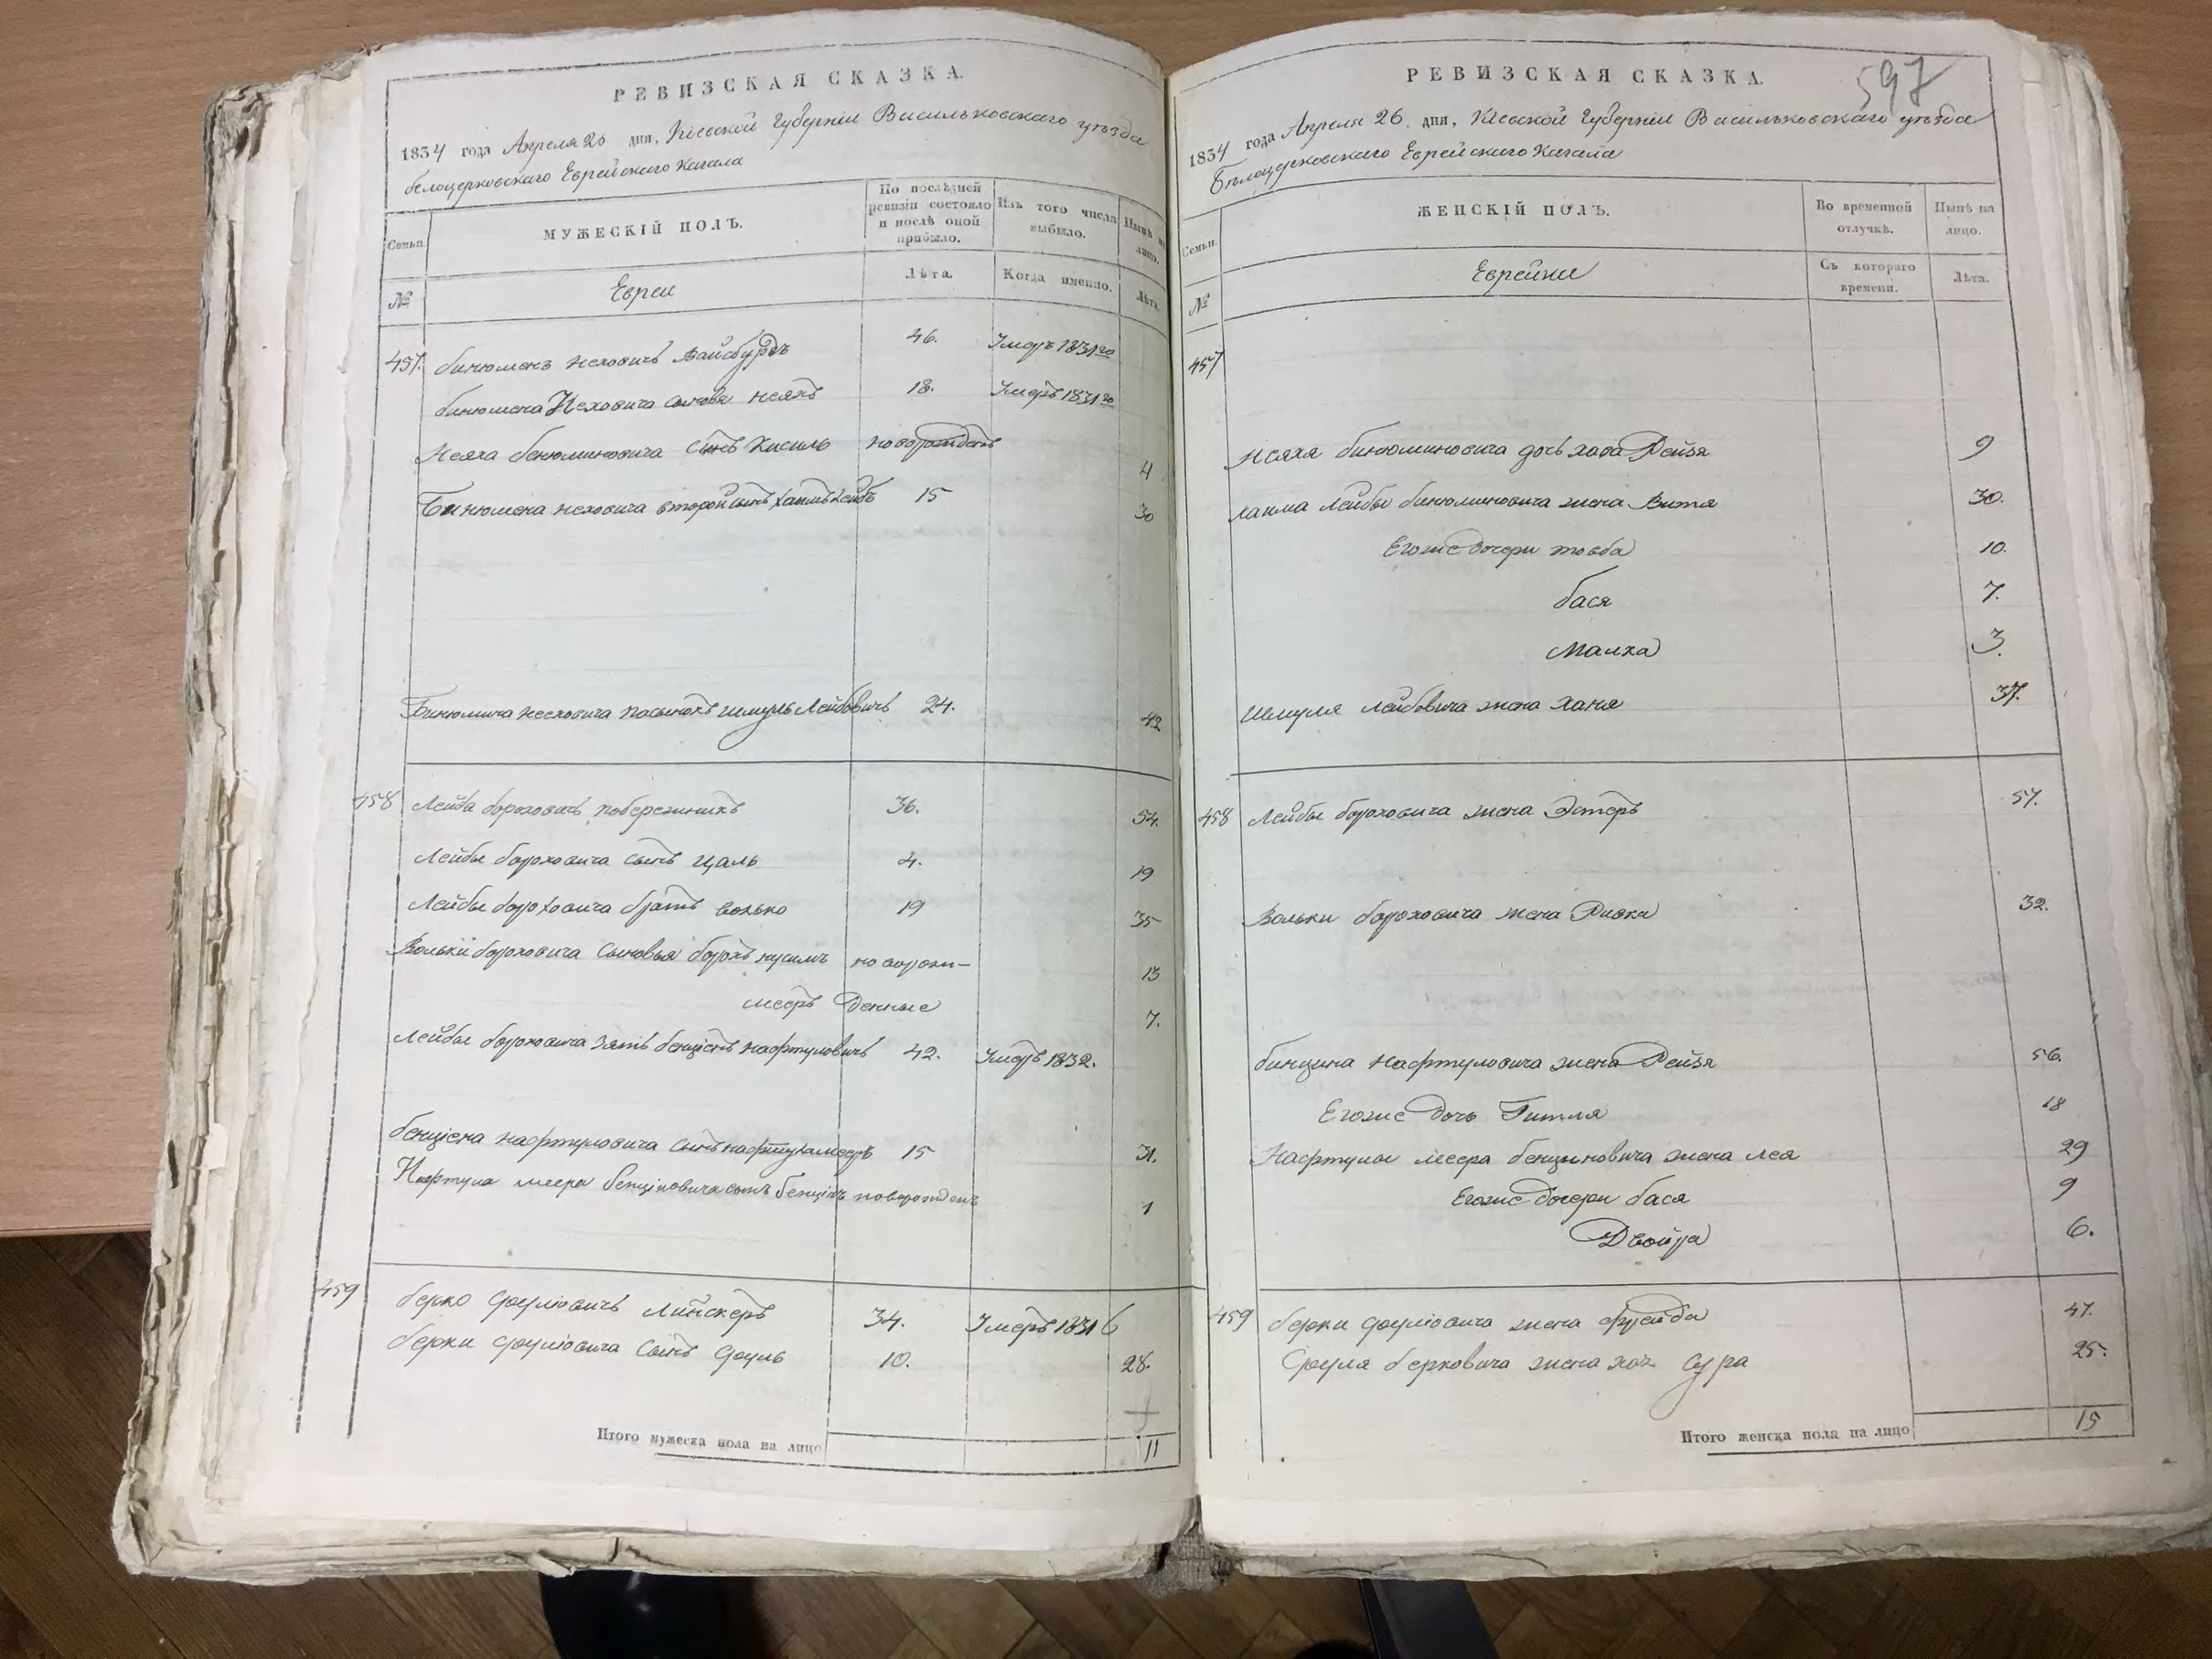 РЕВИЗСКАЯ СКАЗКА.
1834 года Апреля 26 дня, Кіевской Губерніи Васильковскаго уѣзда
белоцерковскаго Еврейскаго Кагала
Семьи.
МУЖЕСКІЙ ПОЛЪ.
По послѣдней ревизіи состояло и послѣ оной прибыло.
Изъ того числа выбыло.
Нынѣ на лицо.
№
Евреи
Лѣта.
Когда именно.
Лѣта.
457. бинюменъ Неховичъ Вайсбурдъ 46. Умеръ 1831 го
бинюмена Неховича сыновя Неяхъ 18. Умеръ 1831 го
Неяха бенюминовича сынъ Кисиль новорожденъ 4
Бинюмена неховича второй сынъ хаимъ Лейбъ 15 30
Бинюмина Неховича пасынокъ шмуль Лейбовичъ 24. 42
458 Лейба бороховичъ побережникъ 36. 54.
Лейбы бороховича сынъ цаль 4. 19
Лейбы бороховича братъ волько 19 35
Вольки бороховича сыновья борохъ нусимъ новорож- 13
мееръ денные 7.
Лейбы бороховича зять бенціонъ нафтуловичъ 42. Умеръ 1832.
бенціона нафтуловича сынъ нафтула мееръ 15 31.
Нафтула меера бенціновича сынъ бенцінъ новорожденъ 1
459 берко сруліовичъ Линскеръ 34. Умеръ 1831 6
берки сруліовича сынъ сруль 10. 28.
Итого мужеска пола на лицо 11
РЕВИЗСКАЯ СКАЗКА.
597
1834 года Апреля 26 дня, Кіевской Губерніи Васильковскаго уѣзда
Бѣлоцерковскаго Еврейскаго Кагала
Семьи.
ЖЕНСКІЙ ПОЛЪ.
Во временной отлучкѣ.
Нынѣ на лицо.
№
Еврейки
Съ котораго времени.
Лѣта.
457
Нсяхя бинюминовича дочь хава Рейзя 9
хаима Лейбы бинюминовича жена Витя 30.
Егоже дочери товба 10.
бася 7.
Малка 3.
Шмуля Лейбовича жена Ханя 37.
458 Лейбы бороховича жена Эстеръ 57.
Вольки бороховича жена Ривка 32.
бинцина Нафтуловича жена Рейзя 56.
Егоже дочь Гитля 18
Нафтулы меера бенциновича жена лея 29
Егоже дочери бася 9
Двойра 6.
459 берки сруліовича жена фрейда 47.
Сруля берковича жена хая сура 25.
Итого женска пола на лицо 15